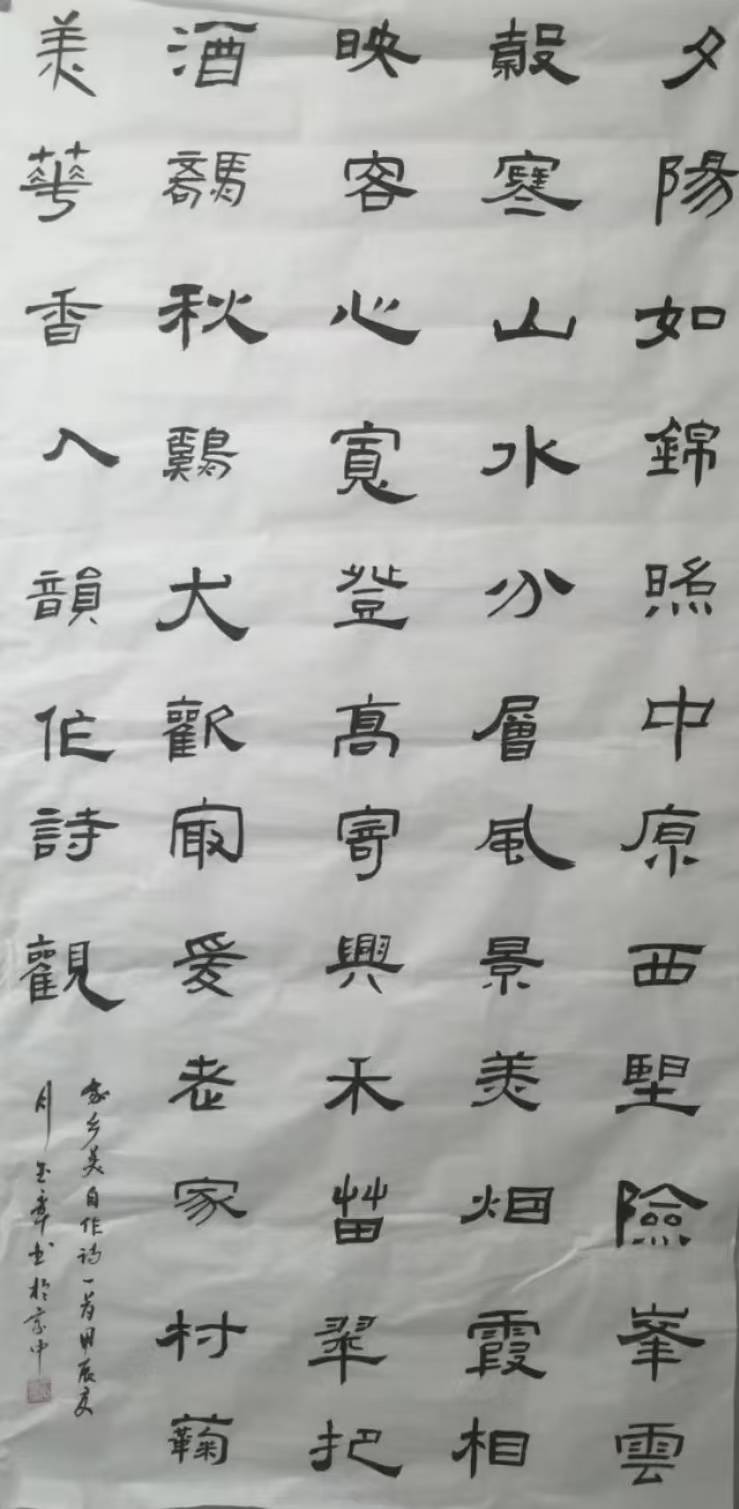 夕陽如錦照中原西朢險峯雲
穀寒山水分層風景美烟霞相
映容心寬登高寄興禾苗翠把
酒驕秋鷄犬歡最愛老家村蘜
美華香入韻作詩觀
家乡美自作诗一首甲辰夏
月金章书於家中